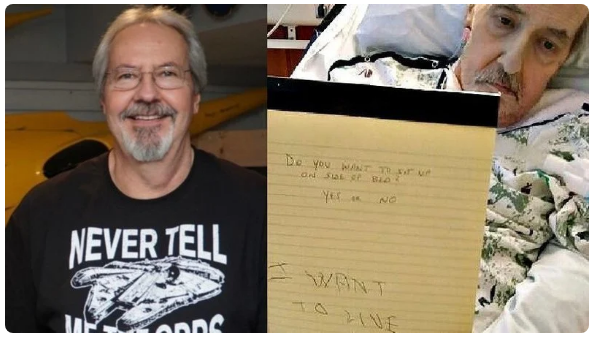 NEVER TELL
ME THE ODDS
DO YOU WANT TO SIT UP
ON SIDE OF BED?
YES or NO
I WANT
TO LIVE